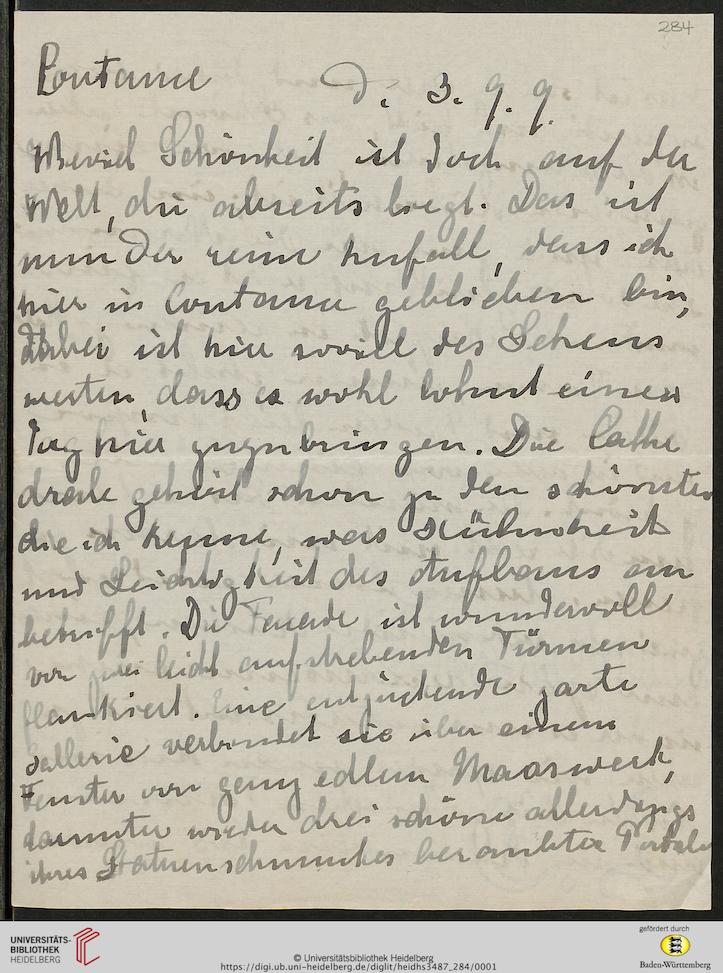 284
Coutance d. 3. 9. 9.
Wieviel Schönheit ist doch auf der
Welt, die abseits liegt. Das ist
nun der reine Zufall, dass ich
hier in Coutance geblieben bin,
Dabei ist hier soviel des Sehens
werten, dass es wohl lohnt einen
Tag hier zuzubringen. Die Cathe
drale gehört schon zu den schönsten
die ich kenne, was Kühnheit
und Leichtigkeit des Aufbaus an
betrifft. Die Facade ist wundervoll
von zwei leicht aufstrebenden Türmen
flankiert. Eine entzückende zarte
Gallerie verbindet sie über einem
Fenster von ganz edlem Maaswerk,
darunter wieder drei schöne allerdings
ihres Statuenschmuckes beraubter Portale
UNIVERSITÄTS-
BIBLIOTHEK
HEIDELBERG
© Universitätsbibliothek Heidelberg
https://digi.ub.uni-heidelberg.de/diglit/heidhs3487_284/0001
gefördert durch
Baden-Württemberg